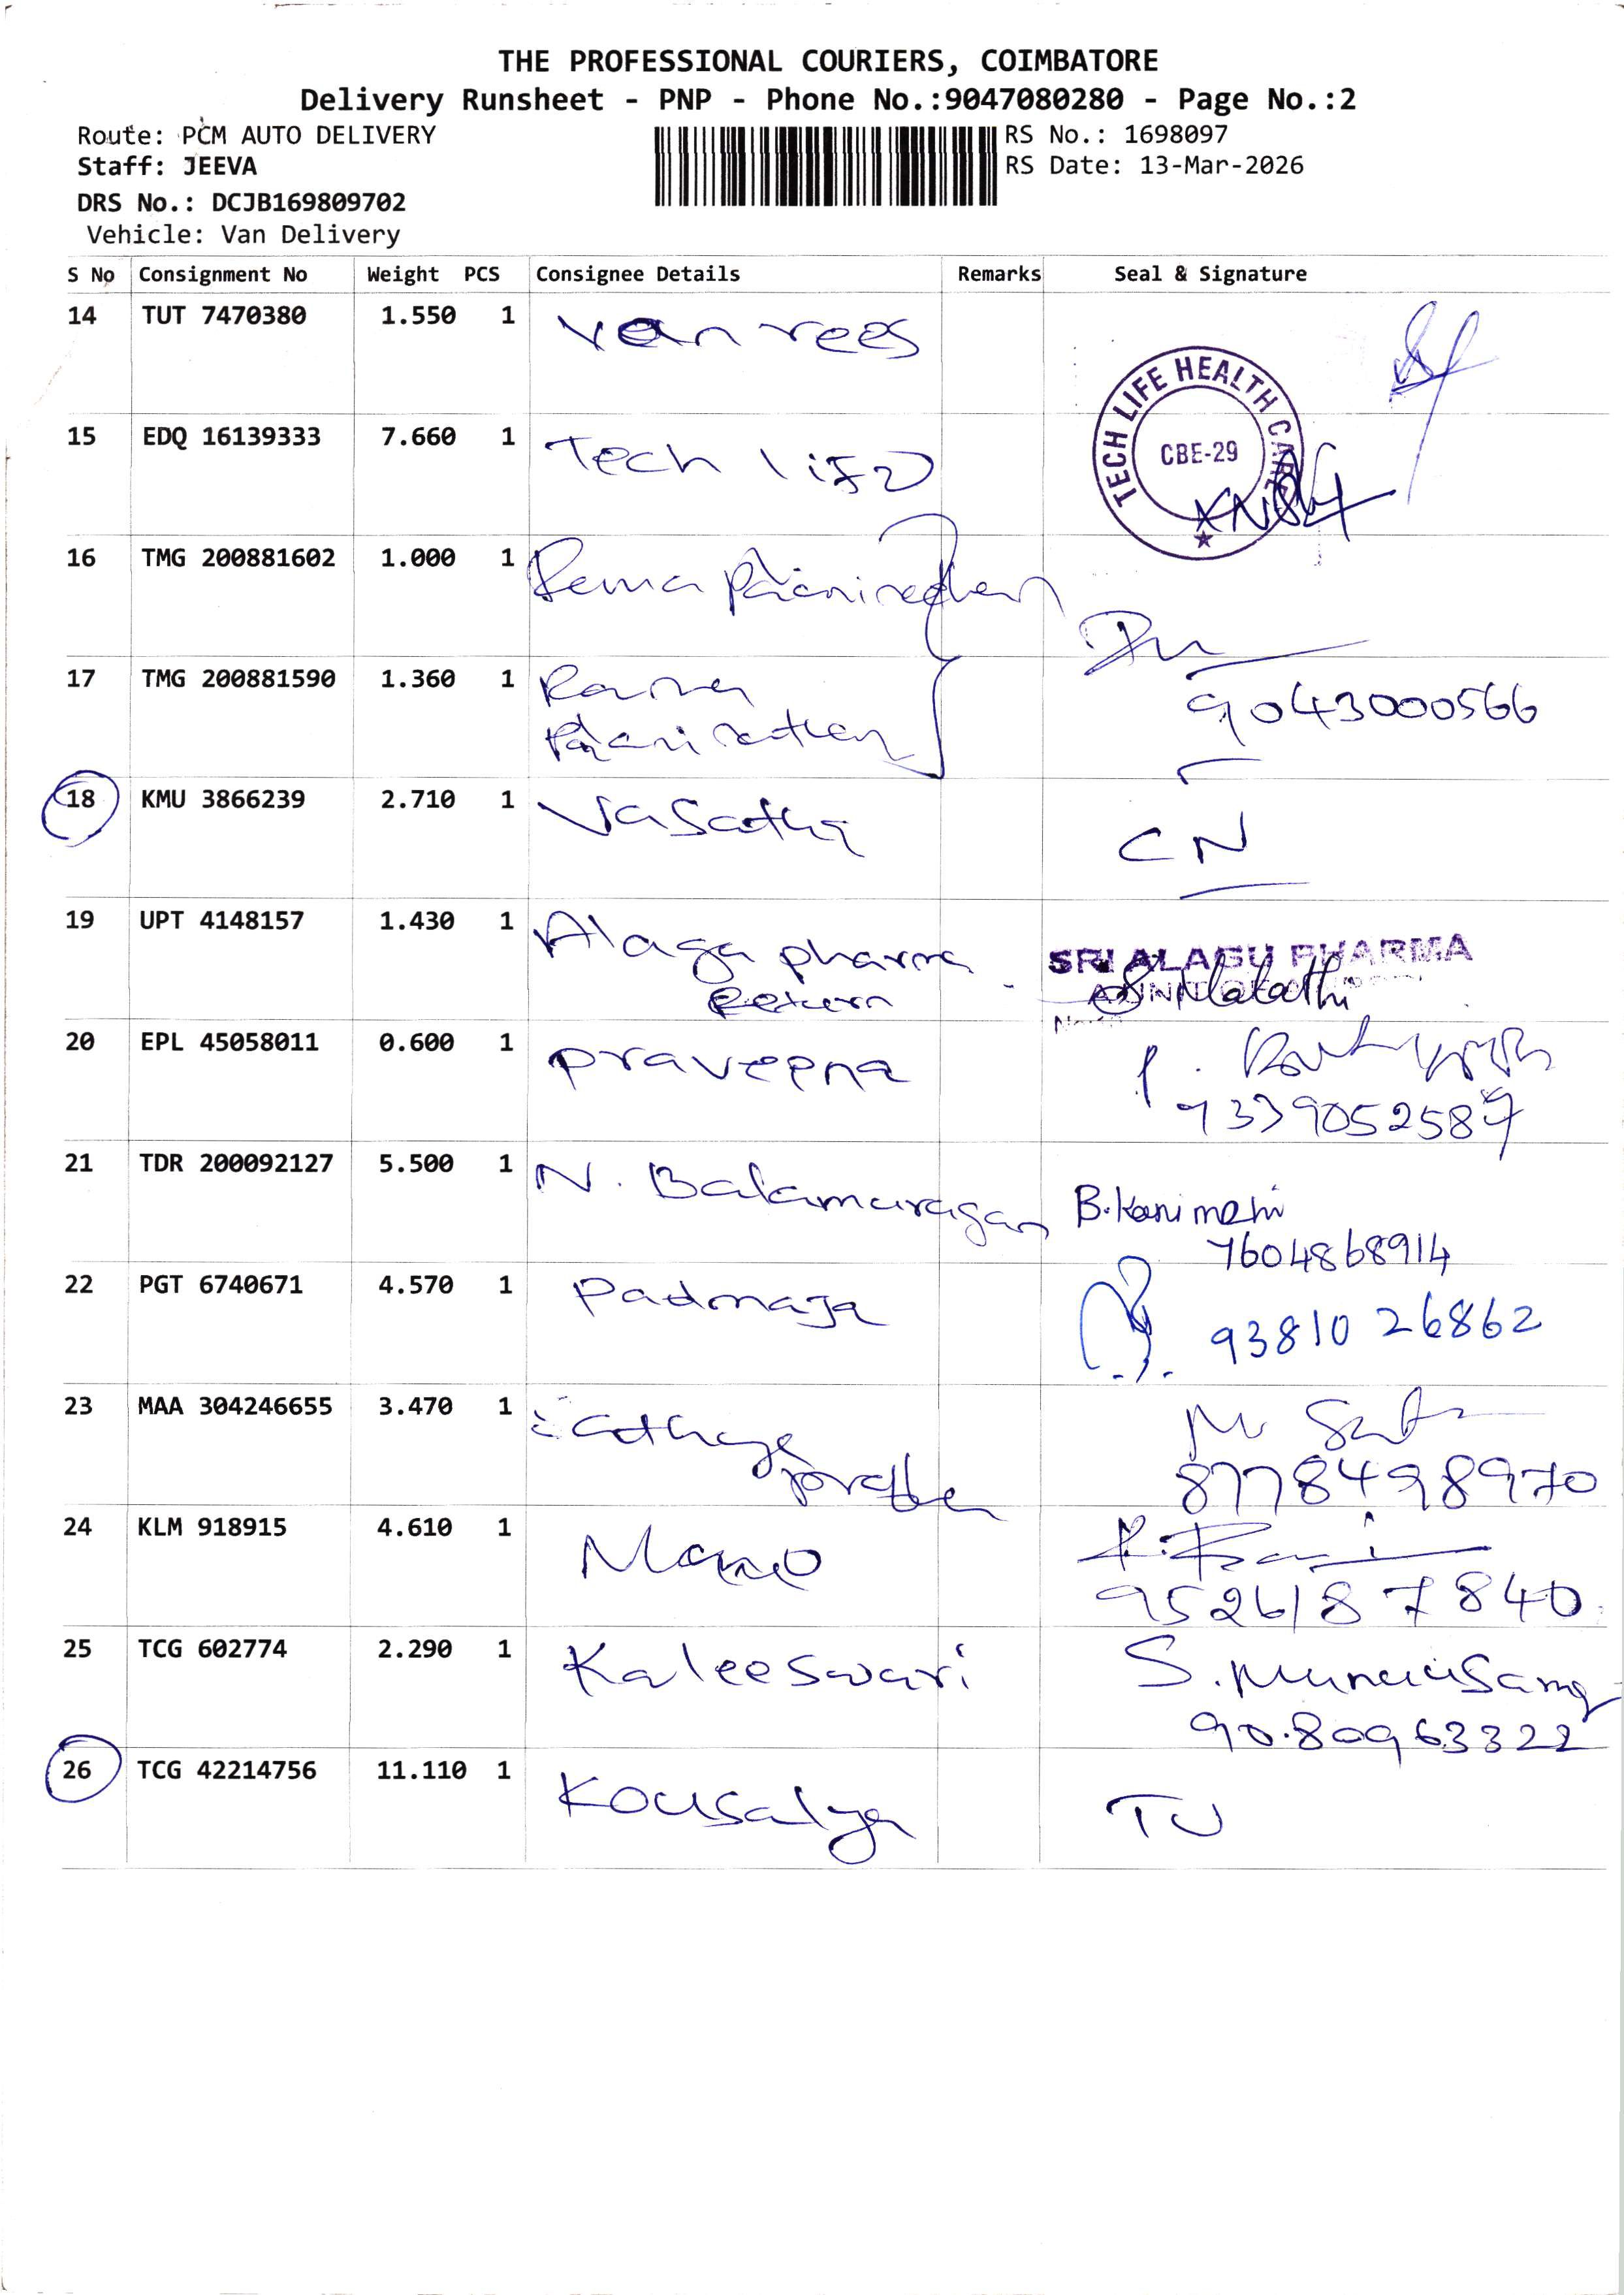 THE PROFESSIONAL COURIERS, COIMBATORE
Delivery Runsheet - PNP - Phone No.:9047080280 - Page No.:2
Route: PCM AUTO DELIVERY
RS No.: 1698097
Staff: JEEVA
RS Date: 13-Mar-2026
DRS No.: DCJB169809702
Vehicle: Van Delivery
S No Consignment No Weight PCS Consignee Details Remarks Seal & Signature
14 TUT 7470380 1.550 1 Van rees
TECH LIFE HEALTH CARE
CBE-29
15 EDQ 16139333 7.660 1 Tech life
16 TMG 200881602 1.000 1
17 TMG 200881590 1.360 1 Rama
9043000566
18 KMU 3866239 2.710 1 Vasatha
CN
19 UPT 4148157 1.430 1 Alaga pharma
SRI ALAGU PHARMA
Return
20 EPL 45058011 0.600 1 praveena
21 TDR 200092127 5.500 1 N. Balamuragan
B.Kanimozhi
7604868914
22 PGT 6740671 4.570 1 Padmaja
93810 26862
23 MAA 304246655 3.470 1
8778498970
24 KLM 918915 4.610 1 Mano
9526187840
25 TCG 602774 2.290 1 Kaleeswari
S. Munusamy
9080963322
26 TCG 42214756 11.110 1 Kousalya
TU